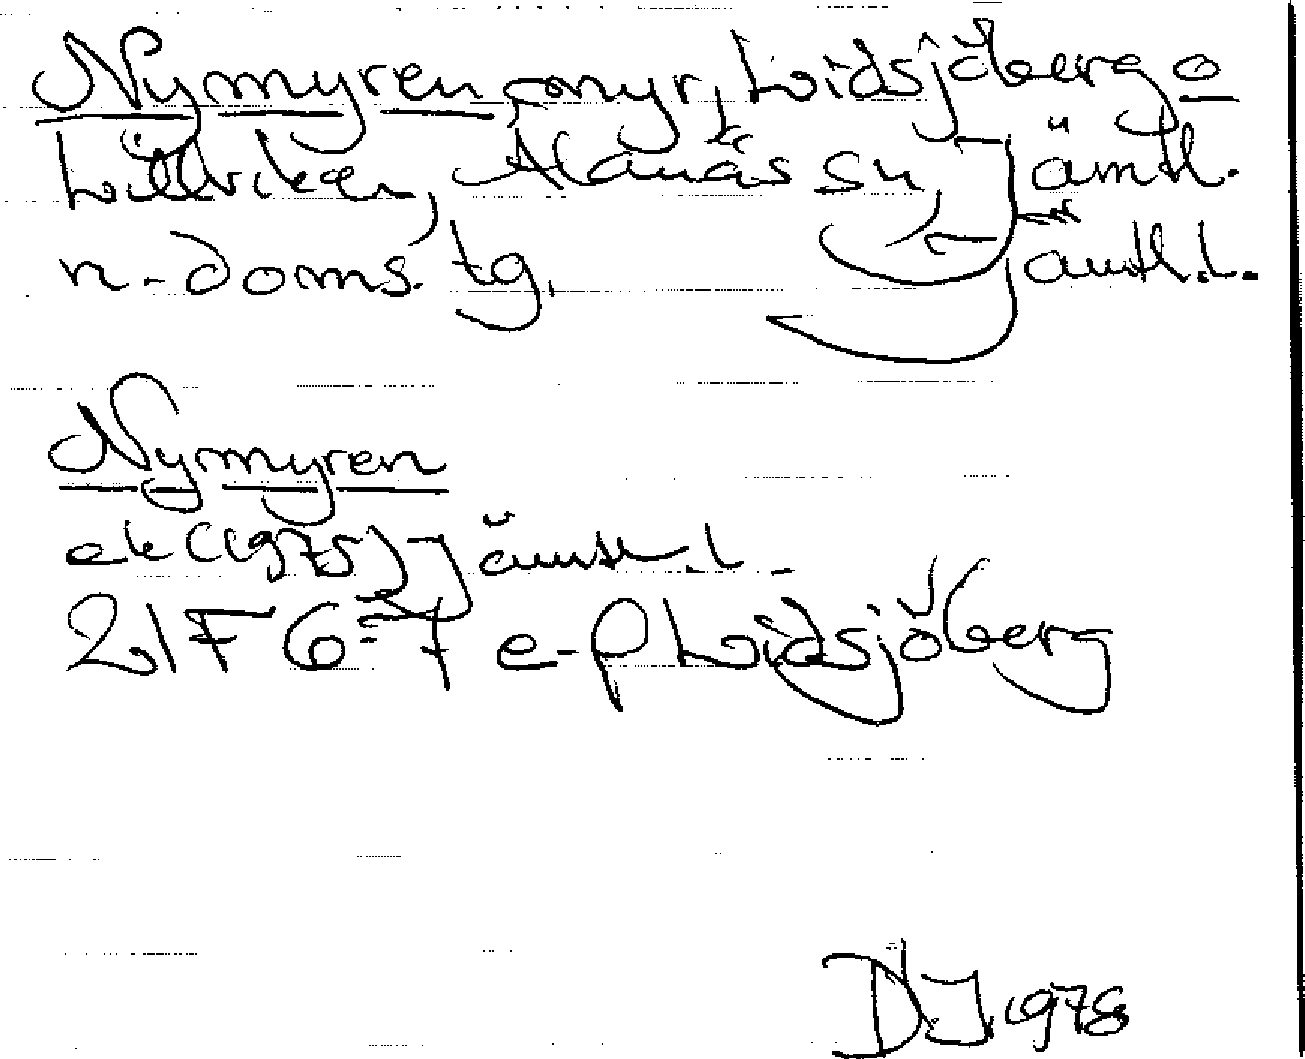 Nymyren, myr, Lidsjöberg o
Lillviken, Alanäs sn, Jämtl.
n. doms. tg. Jämtl.l.
Nymyren
ek (1975) Jämtl.l.
21F 6-7 e-f Lidsjöberg
DJ 1978